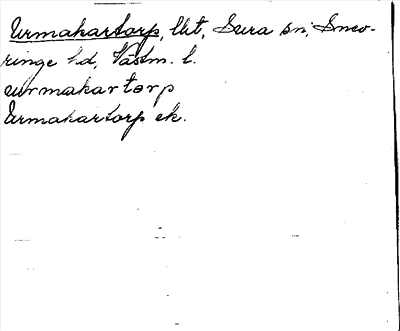 Urmakartorp, lht, Sura sn, Snev-
ringe hd, Västm. l.
urmakartorp
Urmakartorp ek.